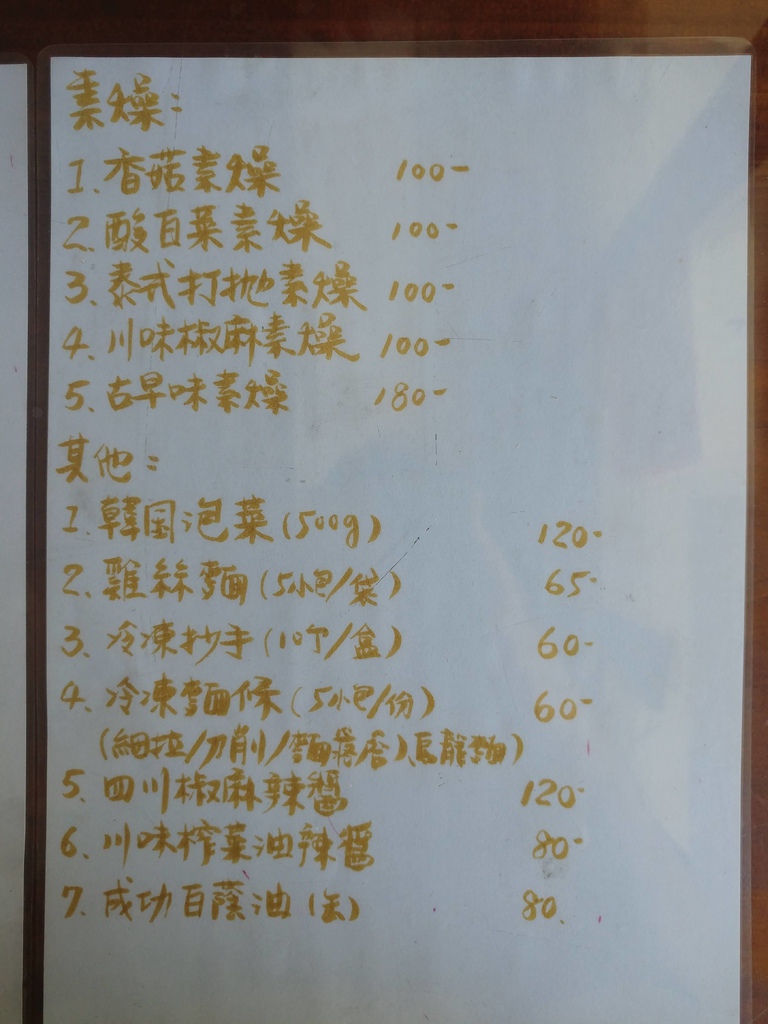 素燥:
1.香菇素燥 100-
2.酸白菜素燥 100-
3.泰式打拋素燥 100-
4.川味椒麻素燥 100-
5.古早味素燥 180-
其他:
1.韓国泡菜(500g) 120-
2.雞絲麵(5小包/袋) 65-
3.冷凍抄手(10个/盒) 60-
4.冷凍麵條(5小包/份) 60-
(細拉/刀削/麵蒋唇)、烏龍麵)
5.四川椒麻辣醬 120-
6.川味榨菜油辣醬 80-
7.成功白蔭油 80.